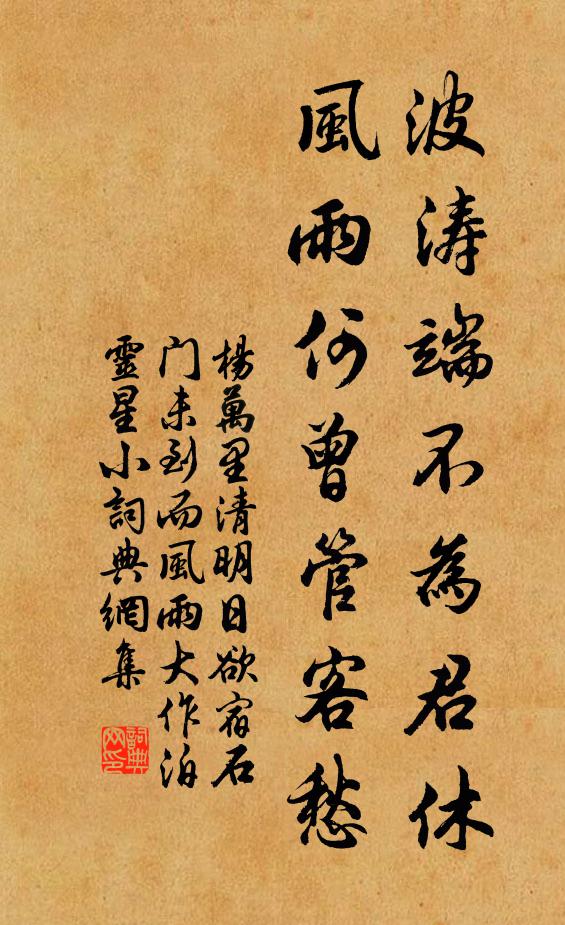 波涛端不為君休
風雨何曾管客愁
楊萬里清明日欲宿石
门未到而風雨大作泊
靈星小詞典網集
詞典
网印